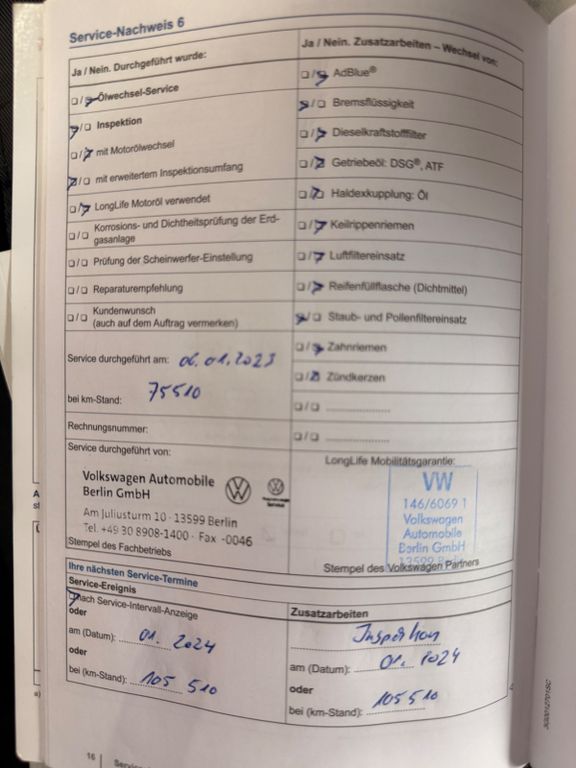 Service-Nachweis 6
Ja / Nein. Durchgeführt wurde:
Ölwechsel-Service
Inspektion
mit Motorölwechsel
mit erweitertem Inspektionsumfang
LongLife Motoröl verwendet
Korrosions- und Dichtheitsprüfung der Erd-
gasanlage
Prüfung der Scheinwerfer-Einstellung
Reparaturempfehlung
Kundenwunsch
(auch auf dem Auftrag vermerken)
Service durchgeführt am: 06.01.2023
bei km-Stand: 75510
Rechnungsnummer:
Service durchgeführt von:
Volkswagen Automobile
Berlin GmbH
Am Juliusturm 10 · 13599 Berlin
Tel. +49 30 8908-1400 · Fax -0046
Stempel des Fachbetriebs
Ja / Nein. Zusatzarbeiten – Wechsel von:
AdBlue®
Bremsflüssigkeit
Dieselkraftstofffilter
Getriebeöl: DSG®, ATF
Haldexkupplung: Öl
Keilrippenriemen
Luftfiltereinsatz
Reifenfüllflasche (Dichtmittel)
Staub- und Pollenfiltereinsatz
Zahnriemen
Zündkerzen
LongLife Mobilitätsgarantie:
VW
146/6069 1
Volkswagen
Automobile
Berlin GmbH
13599 Berlin
Stempel des Volkswagen Partners
Ihre nächsten Service-Termine
Service-Ereignis
nach Service-Intervall-Anzeige
oder
am (Datum): 01. 2024
oder
bei (km-Stand): 105 510
Zusatzarbeiten
Inspektion
am (Datum): 01. 2024
oder
bei (km-Stand): 105510
16